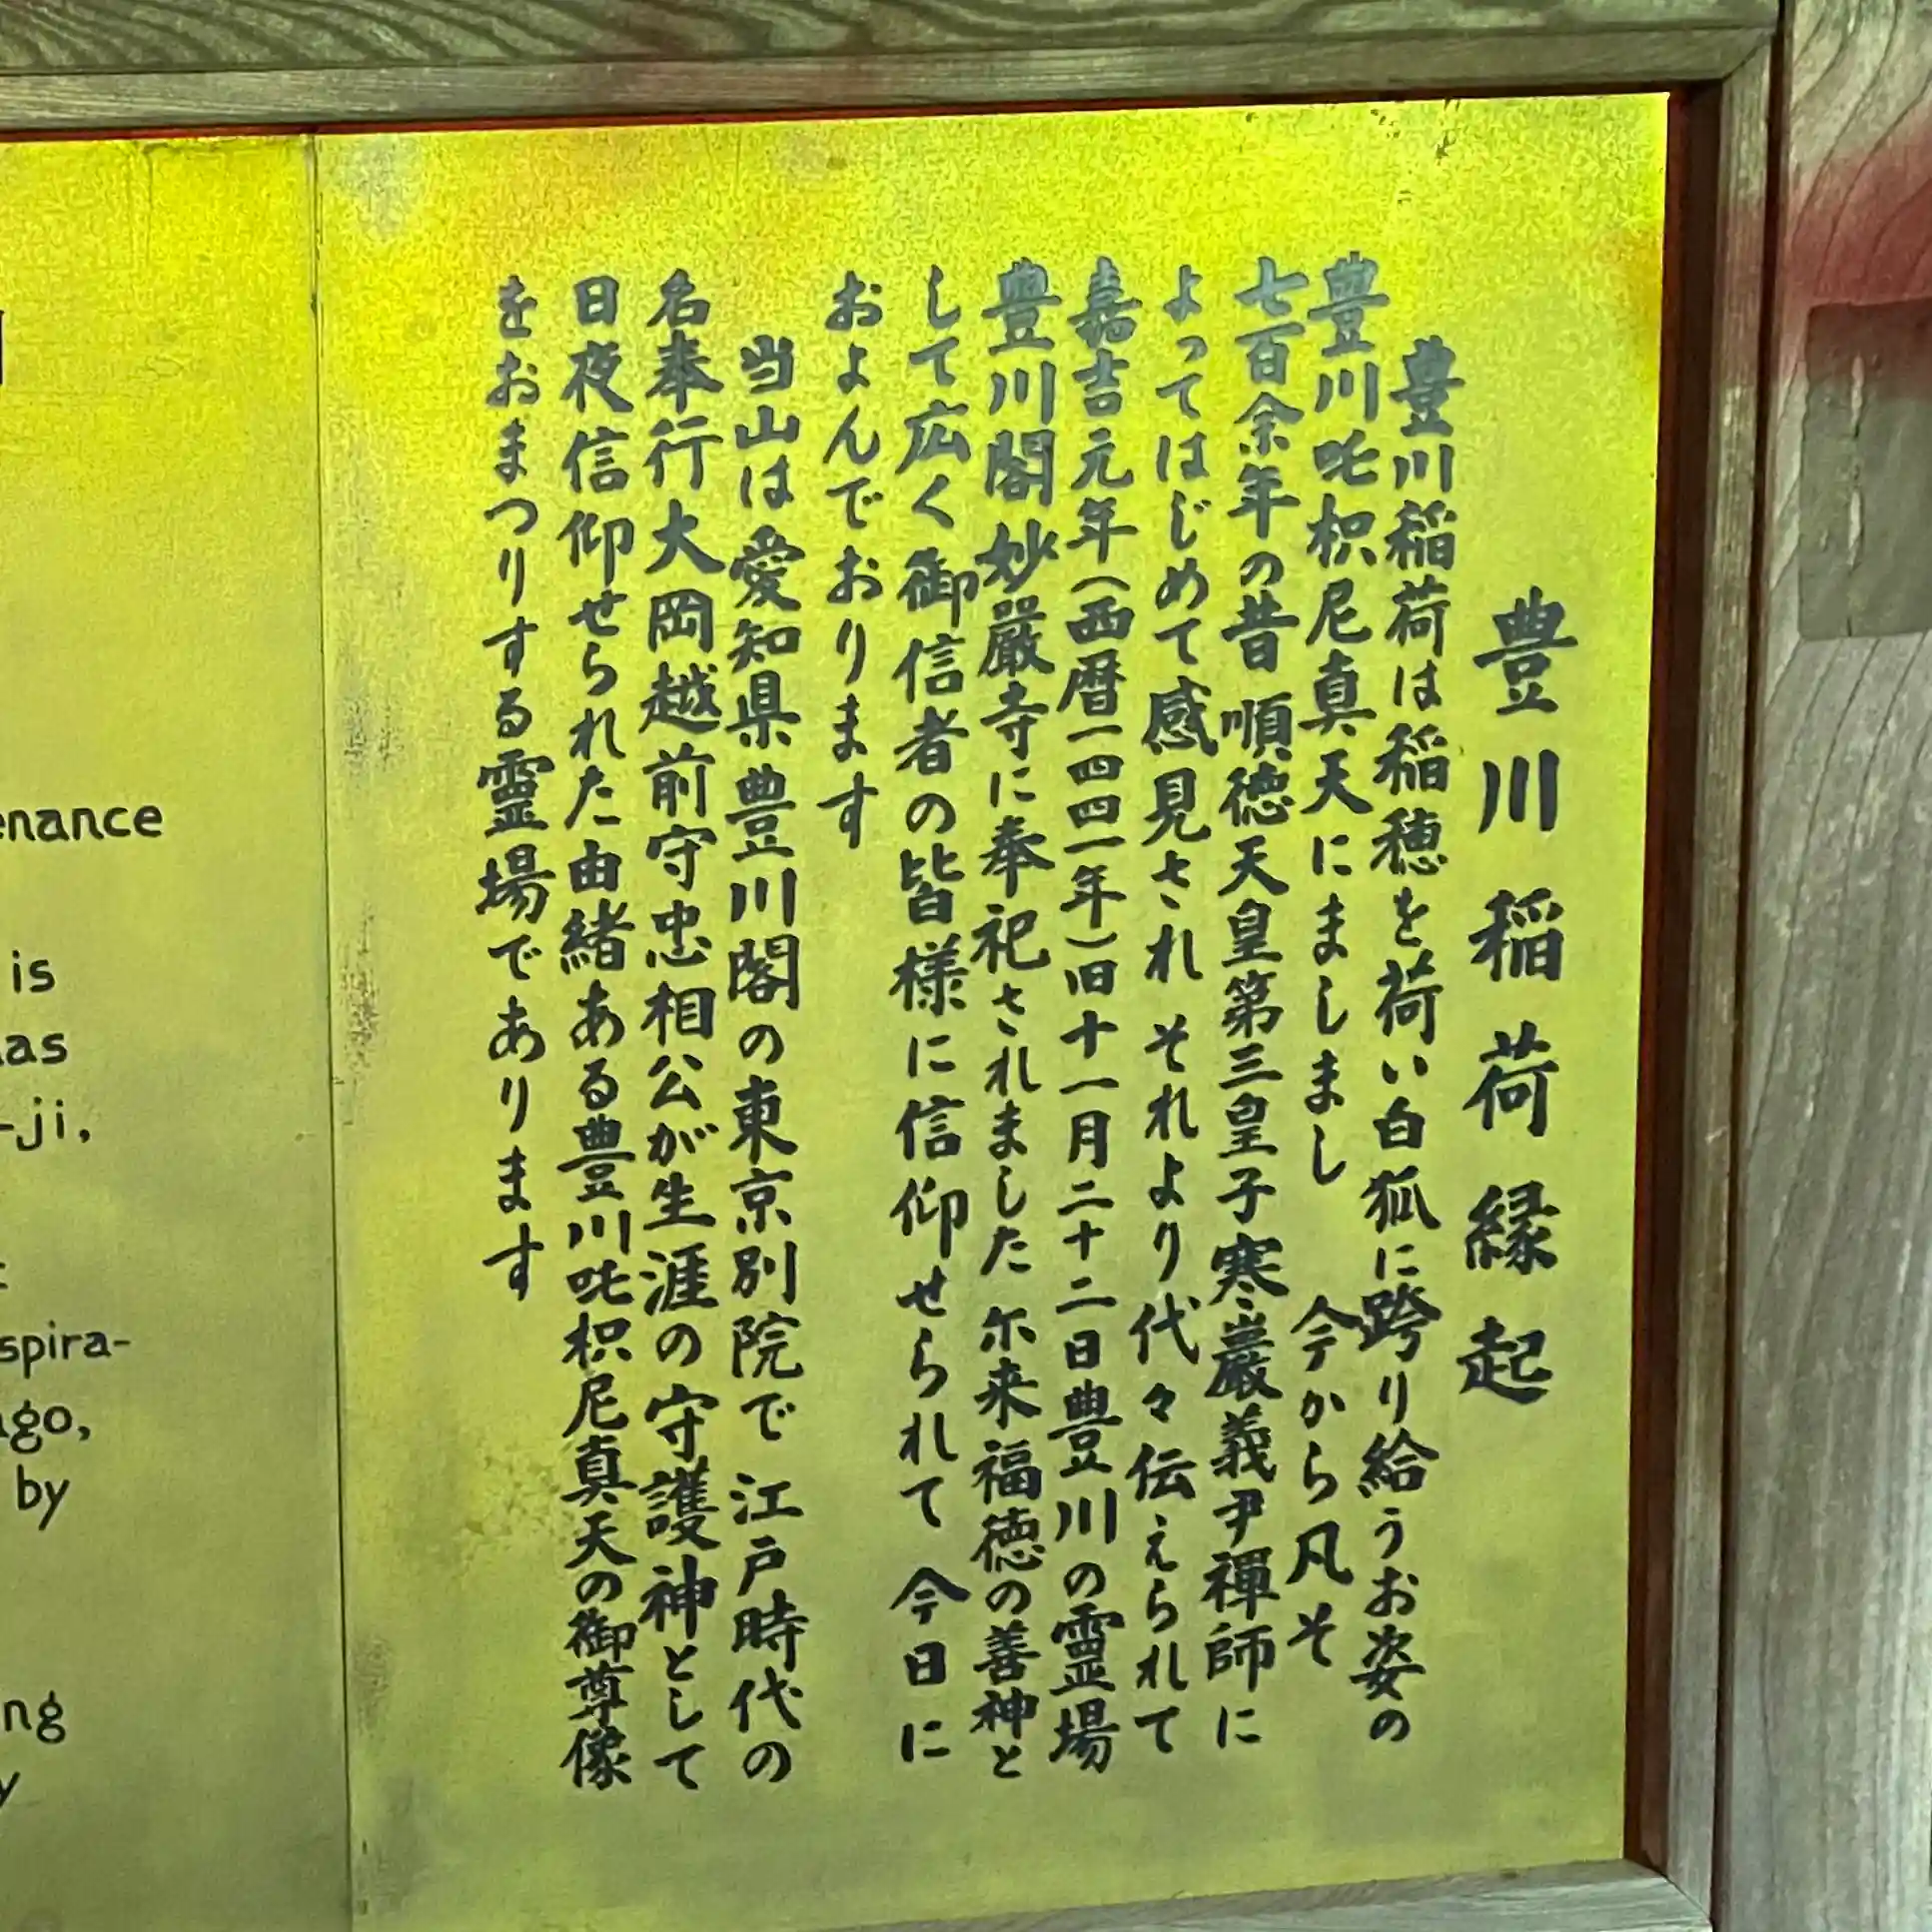 豊川稲荷縁起
豊川稲荷は稲穂を荷い白狐に跨り給うお姿の
豊川吒枳尼真天にましまし 今から凡そ
七百余年の昔 順徳天皇第三皇子寒巖義尹禪師に
よってはじめて感見され それより代々伝えられて
嘉吉元年(西暦一四四一年)旧十一月二十二日豊川の霊場
豊川閣妙厳寺に奉祀されました 尓来福徳の善神と
して広く御信者の皆様に信仰せられて 今日に
およんでおります
当山は愛知県豊川閣の東京別院で 江戸時代の
名奉行大岡越前守忠相公が生涯の守護神として
日夜信仰せられた由緒ある豊川吒枳尼真天の御尊像
をおまつりする霊場であります
enance
is
as
-ji,
spira-
go,
by
ng
y